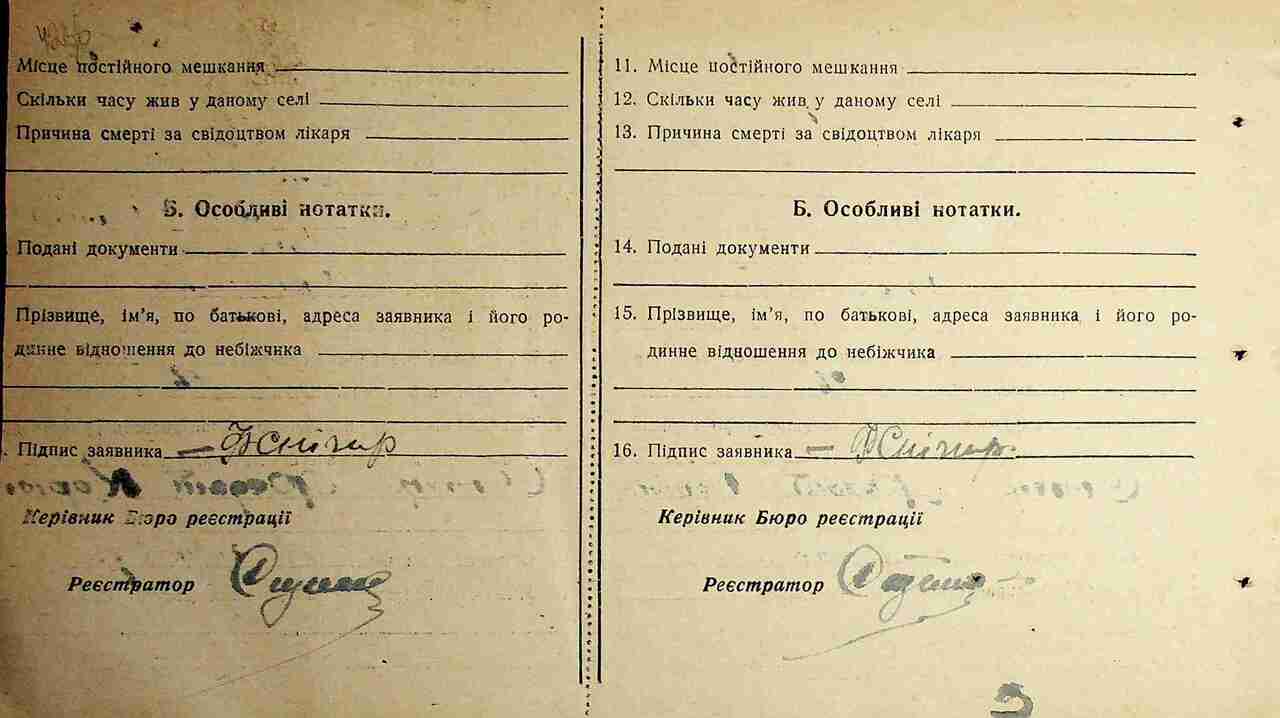 Місце постійного мешкання
Скільки часу жив у даному селі
Причина смерті за свідоцтвом лікаря
Б. Особливі нотатки.
Подані документи
Прізвище, ім’я, по батькові, адреса заявника і його ро-
динне відношення до небіжчика
Підпис заявника — Снігир
Керівник Бюро реєстрації
Реєстратор
11. Місце постійного мешкання
12. Скільки часу жив у даному селі
13. Причина смерті за свідоцтвом лікаря
Б. Особливі нотатки.
14. Подані документи
15. Прізвище, ім’я, по батькові, адреса заявника і його ро-
динне відношення до небіжчика
16. Підпис заявника — Снігир.
Керівник Бюро реєстрації
Реєстратор